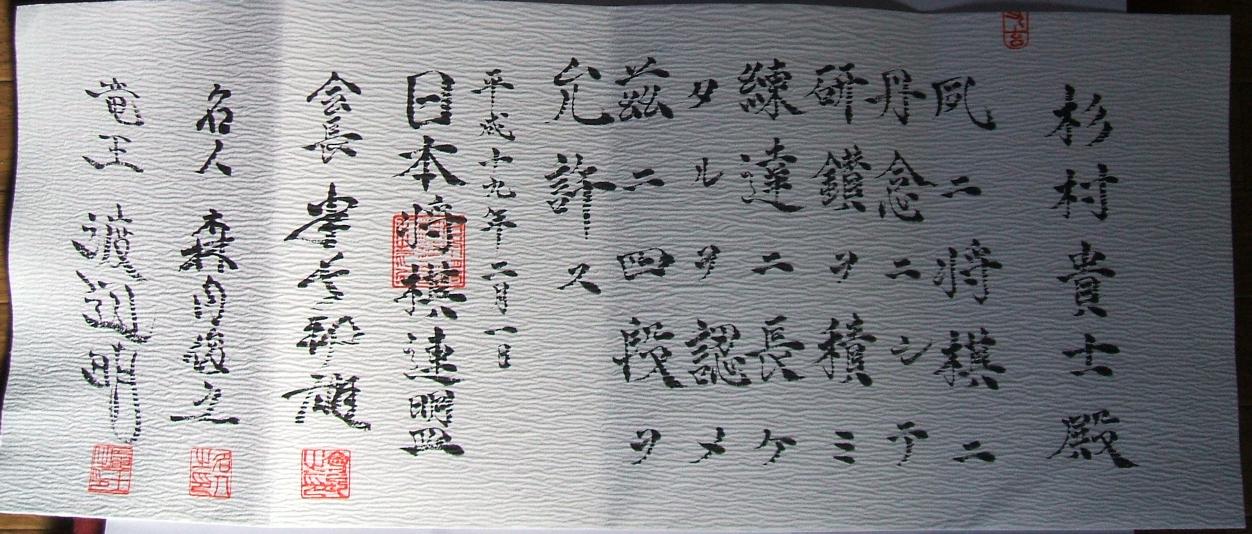 杉村貴士殿
夙ニ将棋ニ
丹念ニシテ
研鑽ヲ積ミ
練達ニ長ケ
タルヲ認メ
茲ニ四段ヲ
允許ス
平成十九年二月一日
日本将棋連盟
会長 米長邦雄
名人 森内俊之
竜王 渡辺明